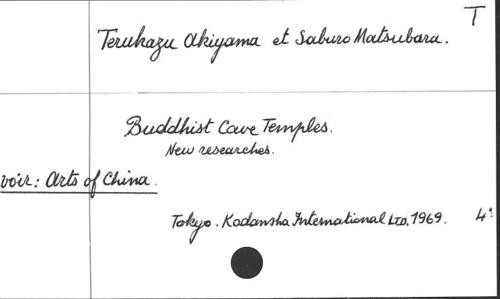 T
Terukazu Akiyama et Saburo Matsubara.
Buddhist Cave Temples.
New researches.
voir: Arts of China.
Tokyo. Kodansha International LTD, 1969. 4°